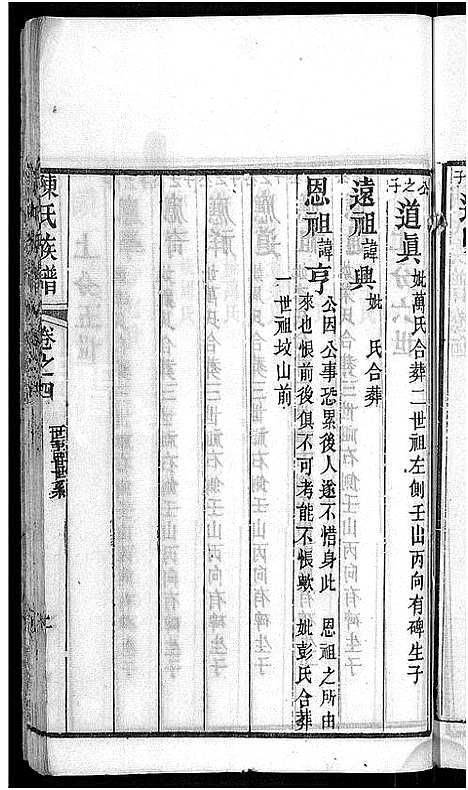 公之子 道眞 妣萬氏合葬二世祖左側壬山丙向有碑生子
遠祖諱興 妣 氏合葬
恩祖諱亨 公因公事恐累後人遂不惜身此 恩祖之所由
來也悵前後俱不可考能不悵歟 妣彭氏合葬
一世祖坟山前
陳氏族譜 卷之四